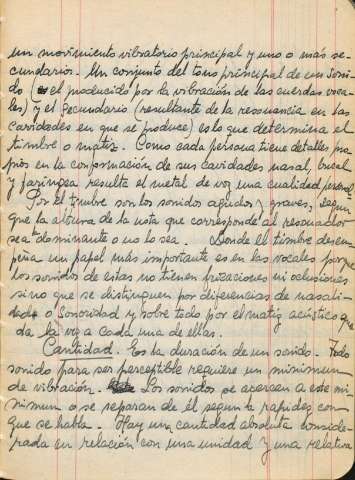 un movimiento vibratorio principal y uno o más se-
cundarios. Un conjunto del tono principal de un soni-
do (el producido por la vibración de las cuerdas voca-
les) y el secundario (resultante de la resonancia en las
cavidades en que se produce) es lo que determina el
timbre o matiz. Como cada persona tiene detalles pro-
pios en la conformación de sus cavidades nasal, bucal
y faríngea resulta el metal de voz una cualidad personal.
Por el timbre son los sonidos agudos y graves, según
que la altura de la nota que corresponde al resonador
sea dominante o no lo sea. Donde el timbre desem-
peña un papel más importante es en las vocales porque
los sonidos de éstas no tienen fricaciones ni oclusiones
sino que se distinguen por diferencias de nasali-
dad o sonoridad y sobre todo por el matiz acústico que
da la voz a cada una de ellas.
Cantidad. Es la duración de un sonido. Todo
sonido para ser perceptible requiere un minimum
de vibración. Los sonidos se acercan a este mi-
nimum o se separan de él según la rapidez con
que se habla. Hay una cantidad absoluta conside-
rada en relación con una unidad y una relativa